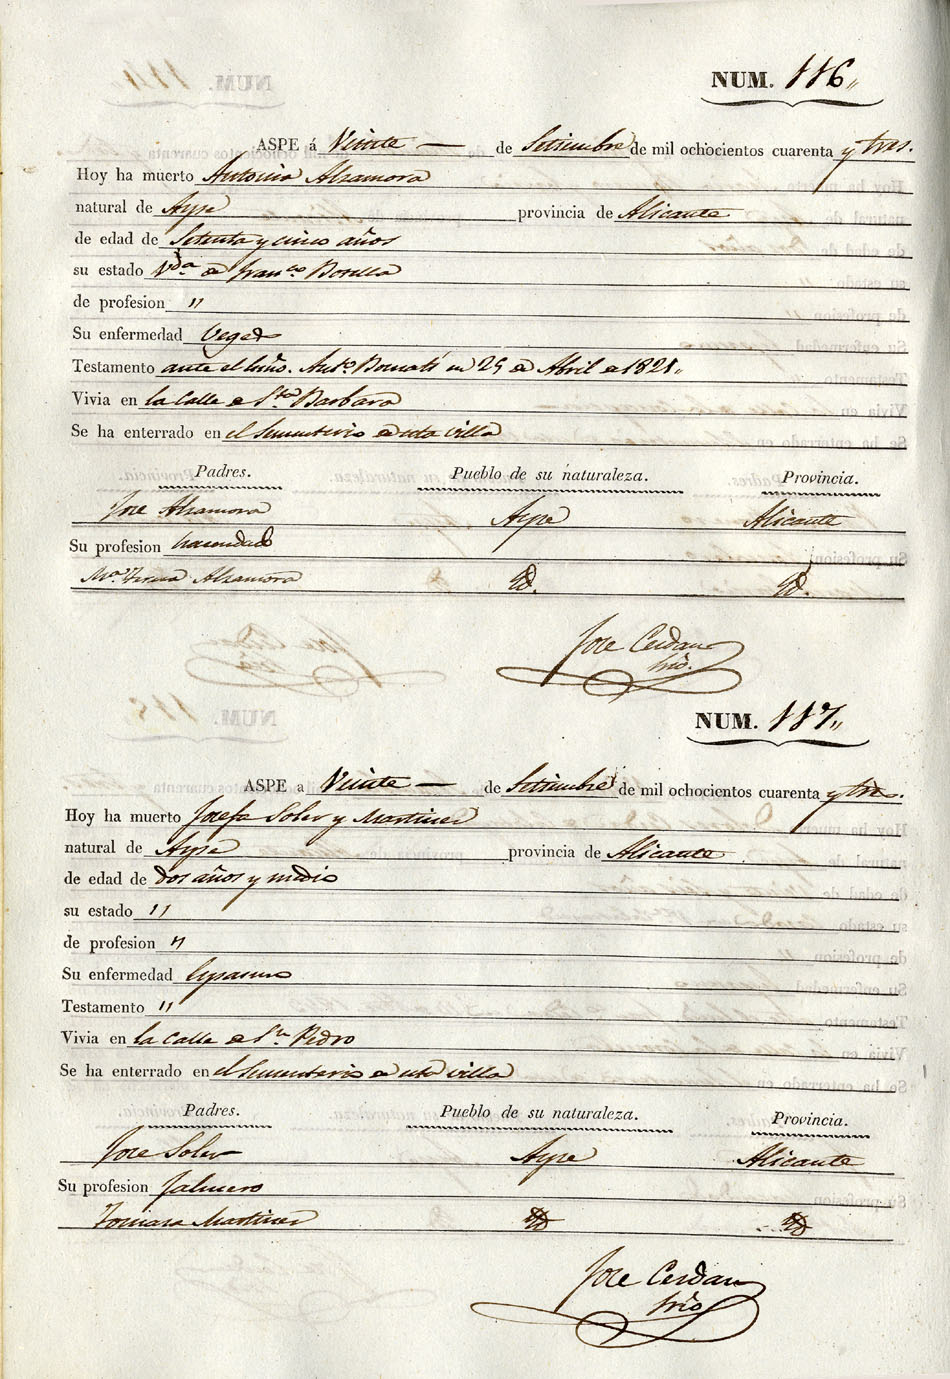 NUM. 116,,
ASPE á Veinte — de Setiembre de mil ochocientos cuarenta y tres.
Hoy ha muerto Antonia Alzamora
natural de Aspe provincia de Alicante
de edad de Setenta y cinco años
su estado Vda de Franco Botella
de profesion "
Su enfermedad Vegez
Testamento ante el Anto en 25 de Abril de 1821,,
Vivia en la Calle de Sta Barbara
Se ha enterrado en el Sementerio de esta villa
Padres. Pueblo de su naturaleza. Provincia.
Jose Alzamora Aspe Alicante
Su profesion hacendado
Ma Teresa Alzamora Id. Id.
Jose Cerdan
Srio.
NUM. 117,,
ASPE a Veinte — de Setiembre de mil ochocientos cuarenta y tres.
Hoy ha muerto Josefa Soler y Martinez
natural de Aspe provincia de Alicante
de edad de dos años y medio
su estado "
de profesion "
Su enfermedad
Testamento "
Vivia en la Calle de Sn Pedro
Se ha enterrado en el Sementerio de esta villa
Padres. Pueblo de su naturaleza. Provincia.
Jose Soler Aspe Alicante
Su profesion Jalmero
Tomasa Martinez Id Id
Jose Cerdan
Srio